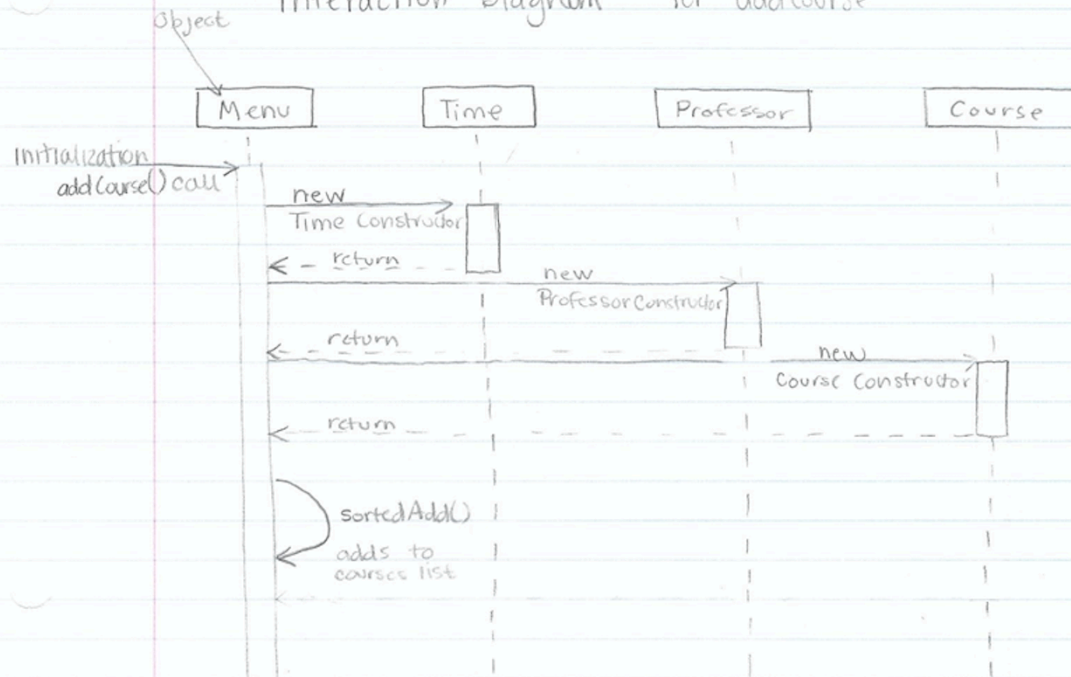 Interaction Diagram for addCourse
Object
Menu
Time
Professor
Course
Initialization
addCourse() call
new
Time Constructor
return
new
Professor Constructor
return
new
Course Constructor
return
sortedAdd()
adds to
courses list